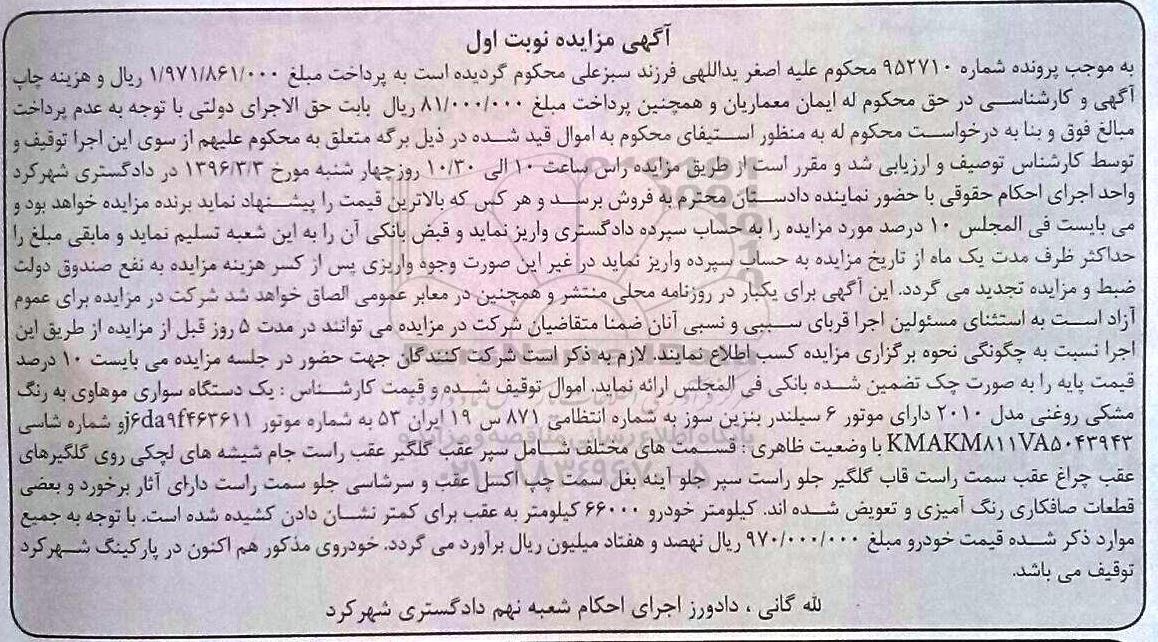 آگهی مزایده نوبت اول
به موجب پرونده شماره ۹۵۲۷۱۰ محکوم علیه اصغر یداللهی فرزند سبزعلی محکوم گردیده است به پرداخت مبلغ ۱/۹۷۱/۸۶۱/۰۰۰ ریال و هزینه چاپ
آگهی و کارشناسی در حق محکوم له ایمان معماریان و همچنین پرداخت مبلغ ۸۱/۰۰۰/۰۰۰ ریال بابت حق الاجرای دولتی با توجه به عدم پرداخت
مبالغ فوق و بنا به درخواست محکوم له به منظور استیفای محکوم به اموال قید شده در ذیل برگه متعلق به محکوم علیهم از سوی این اجرا توقیف و
توسط کارشناس توصیف و ارزیابی شد و مقرر است از طریق مزایده راس ساعت ۱۰ الی ۱۰/۳۰ روزچهار شنبه مورخ ۱۳۹۶/۳/۳ در دادگستری شهرکرد
واحد اجرای احکام حقوقی با حضور نماینده دادستان محترم به فروش برسد و هر کس که بالاترین قیمت را پیشنهاد نماید برنده مزایده خواهد بود و
می بایست فی المجلس ۱۰ درصد مورد مزایده را به حساب سپرده دادگستری واریز نماید و قبض بانکی آن را به این شعبه تسلیم نماید و مابقی مبلغ را
حداکثر ظرف مدت یک ماه از تاریخ مزایده به حساب سپرده واریز نماید در غیر این صورت وجوه واریزی پس از کسر هزینه مزایده به نفع صندوق دولت
ضبط و مزایده تجدید می گردد. این آگهی برای یکبار در روزنامه محلی منتشر و همچنین در معابر عمومی الصاق خواهد شد شرکت در مزایده برای عموم
آزاد است به استثنای مسئولین اجرا قربای سببی و نسبی آنان ضمنا متقاضیان شرکت در مزایده می توانند در مدت ۵ روز قبل از مزایده از طریق این
اجرا نسبت به چگونگی نحوه برگزاری مزایده کسب اطلاع نمایند. لازم به ذکر است شرکت کنندگان جهت حضور در جلسه مزایده می بایست ۱۰ درصد
قیمت پایه را به صورت چک تضمین شده بانکی فی المجلس ارائه نماید. اموال توقیف شده و قیمت کارشناس : یک دستگاه سواری موهاوی به رنگ
مشکی روغنی مدل ۲۰۱۰ دارای موتور ۶ سیلندر بنزین سوز به شماره انتظامی ۸۷۱ س ۱۹ ایران ۵۳ به شماره موتور j۶da۹f۴۶۳۶۱۱و شماره شاسی
KMAKM۸۱۱VA۵۰۴۳۹۴۳ با وضعیت ظاهری : قسمت های مختلف شامل سپر عقب گلگیر عقب راست جام شیشه های لچکی روی گلگیرهای
عقب چراغ عقب سمت راست قاب گلگیر جلو راست سپر جلو آینه بغل سمت چپ اکسل عقب و سرشاسی جلو سمت راست دارای آثار برخورد و بعضی
قطعات صافکاری رنگ آمیزی و تعویض شده اند. کیلومتر خودرو ۶۶۰۰۰ کیلومتر به عقب برای کمتر نشان دادن کشیده شده است. با توجه به جمیع
موارد ذکر شده قیمت خودرو مبلغ ۹۷۰/۰۰۰/۰۰۰ ریال نهصد و هفتاد میلیون ریال برآورد می گردد. خودروی مذکور هم اکنون در پارکینگ شهرکرد
توقیف می باشد.
لله گانی ، دادورز اجرای احکام شعبه نهم دادگستری شهرکرد